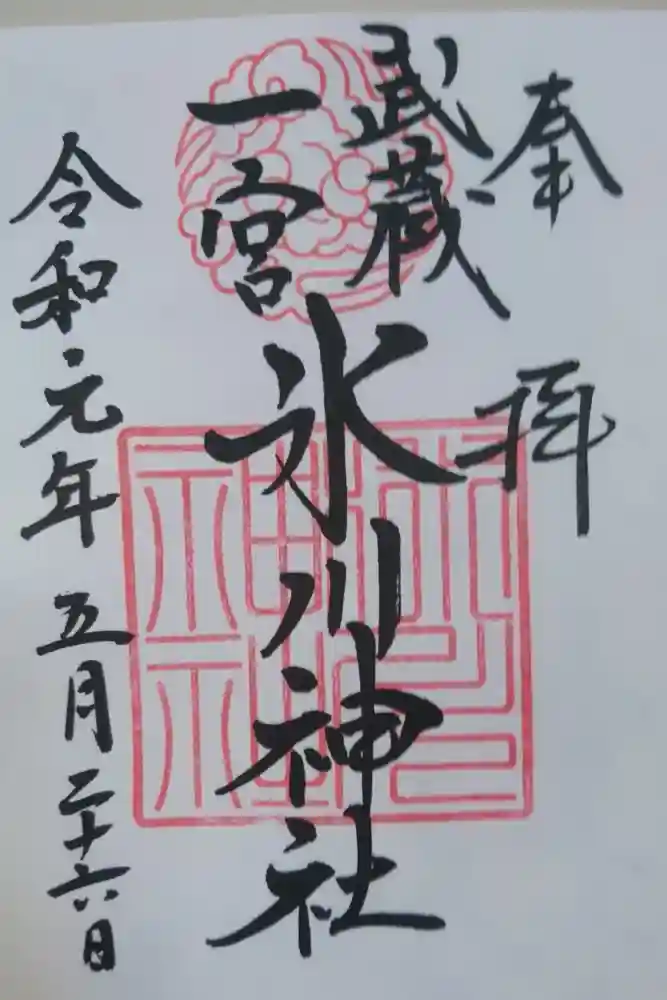 奉拝
武蔵
一宮
氷川神社
令和元年 五月二十六日